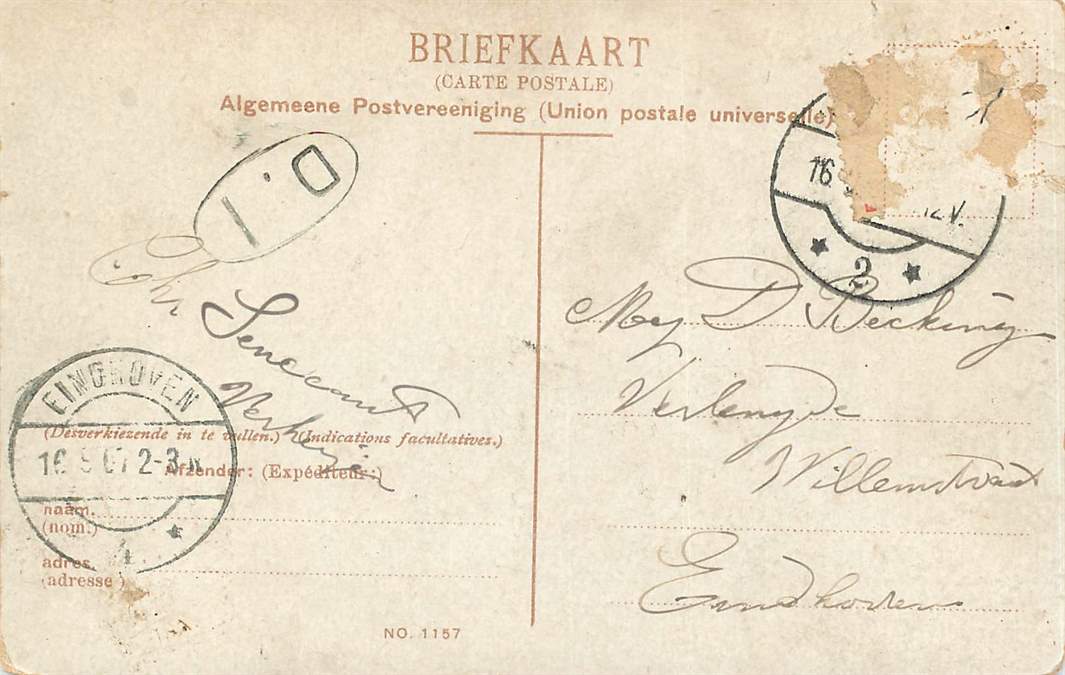 BRIEFKAART
(CARTE POSTALE)
Algemeene Postvereeniging (Union postale universelle)
D. I
16 12 V.
2
Senecaut
Mej D Becking
Verlengde
Willemstraat
Eindhoven
EINDHOVEN
16 5 07 2-3 N
4
(Desverkiezende in te vullen.) (Indications facultatives.)
Afzender: (Expéditeur:)
naam.
(nom:)
adres.
(adresse)
NO. 1157